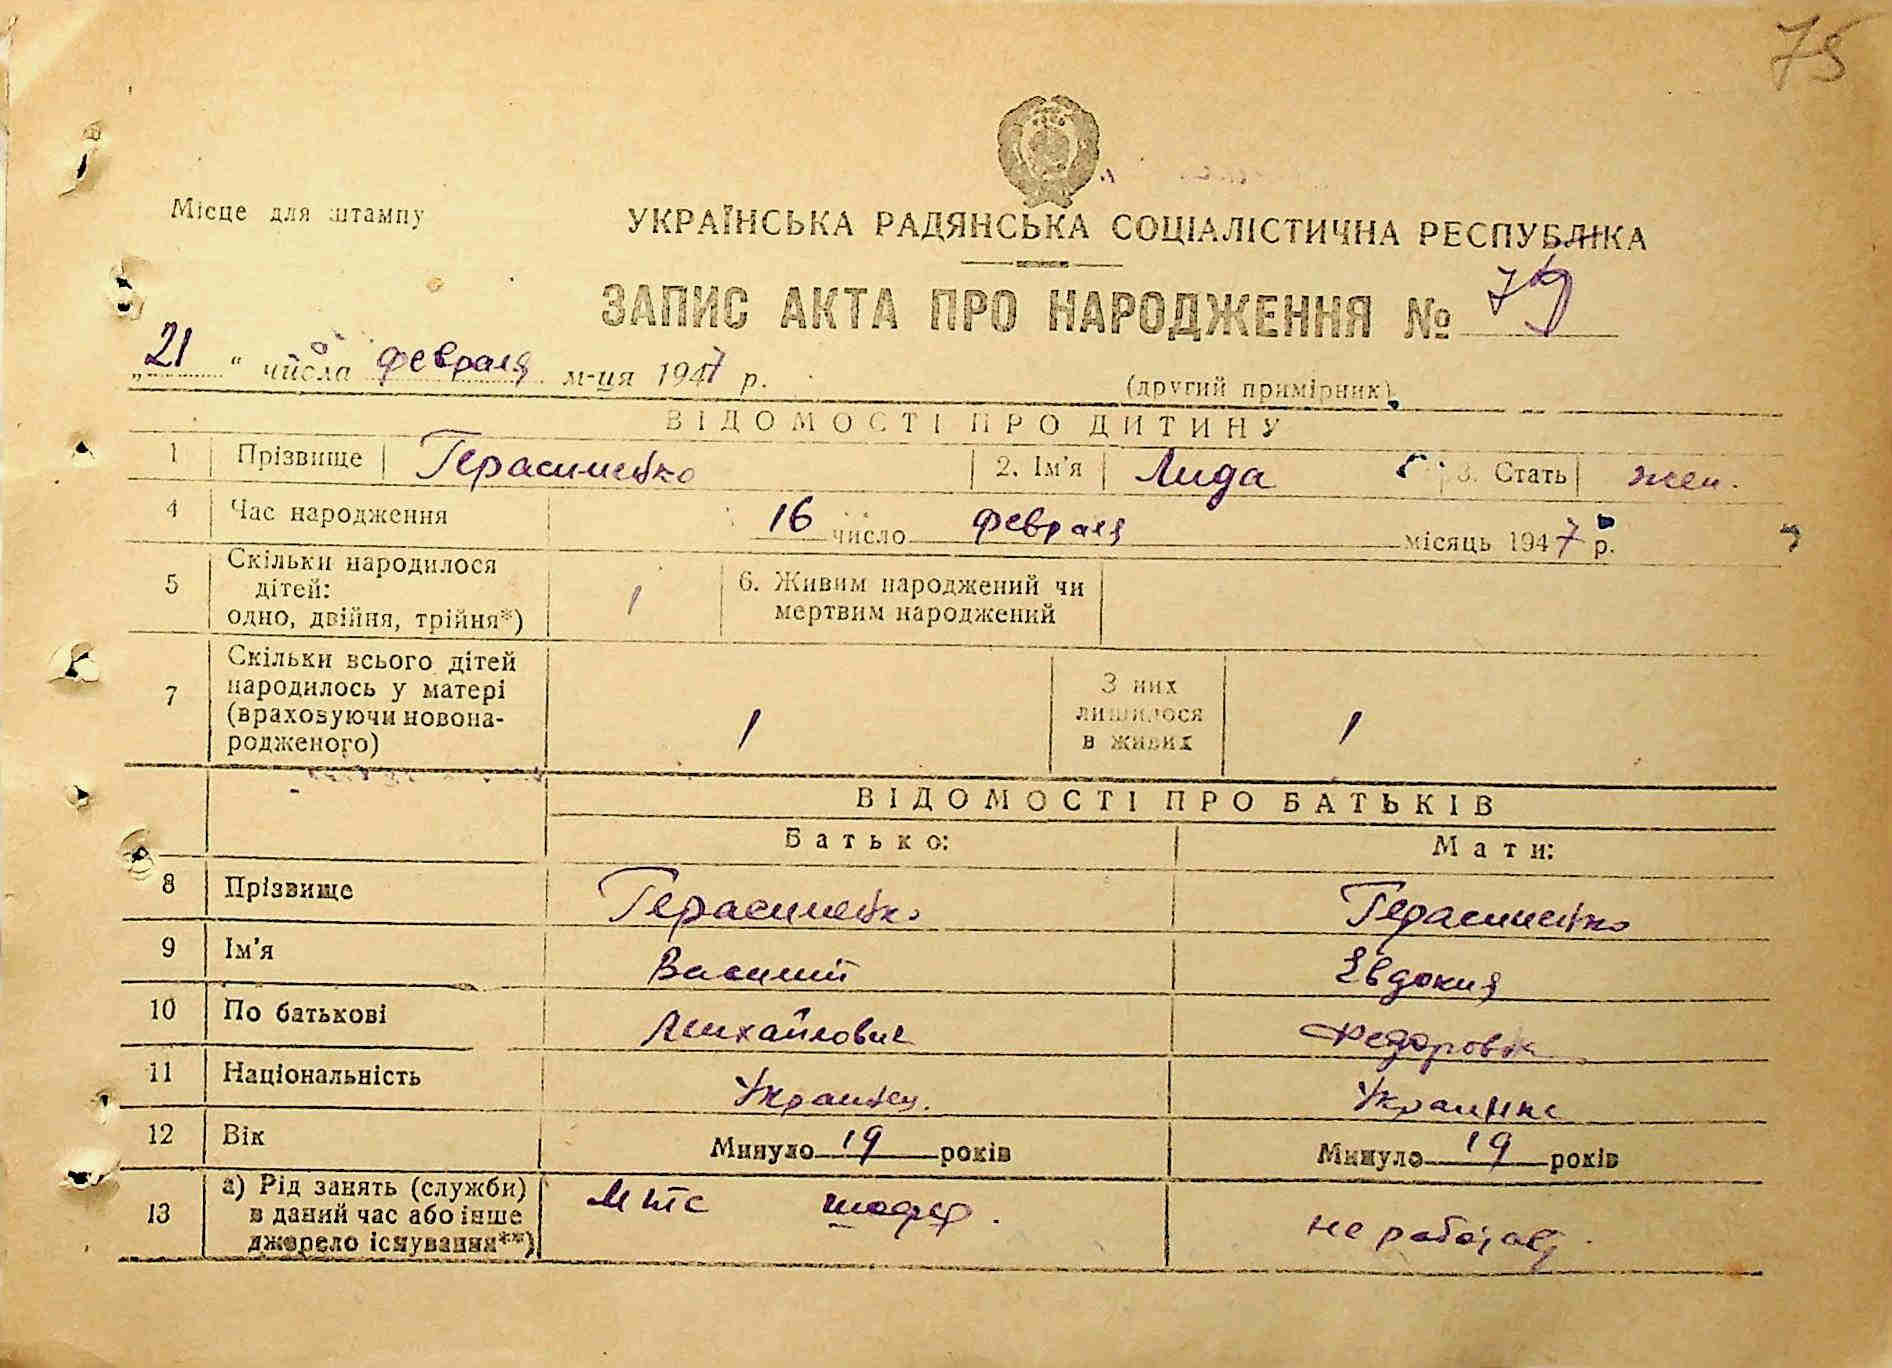 75
Місце для штампу
УКРАЇНСЬКА РАДЯНСЬКА СОЦІАЛІСТИЧНА РЕСПУБЛІКА
ЗАПИС АКТА ПРО НАРОДЖЕННЯ № 79
„21“ числа февраля м-ця 1947 р.
(другий примірник)
ВІДОМОСТІ ПРО ДИТИНУ
1 Прізвище Герасименко 2. Ім'я Лида 3. Стать жен.
4 Час народження 16 число февраля місяць 1947 р.
5 Скільки народилося
дітей:
одно, двійня, трійня*) 1 6. Живим народжений чи
мертвим народжений
7 Скільки всього дітей
народилось у матері
(враховуючи новона-
родженого) 1 З них
лишилося
в живих 1
ВІДОМОСТІ ПРО БАТЬКІВ
Батько: Мати:
8 Прізвище Герасименко Герасименко
9 Ім'я Василий Евдокия
10 По батькові Михайлович Федоровна
11 Національність Украинец. Украинка
12 Вік Минуло 19 років Минуло 19 років
13 а) Рід занять (служби)
в даний час або інше
джерело існування**) МТС шофер. не